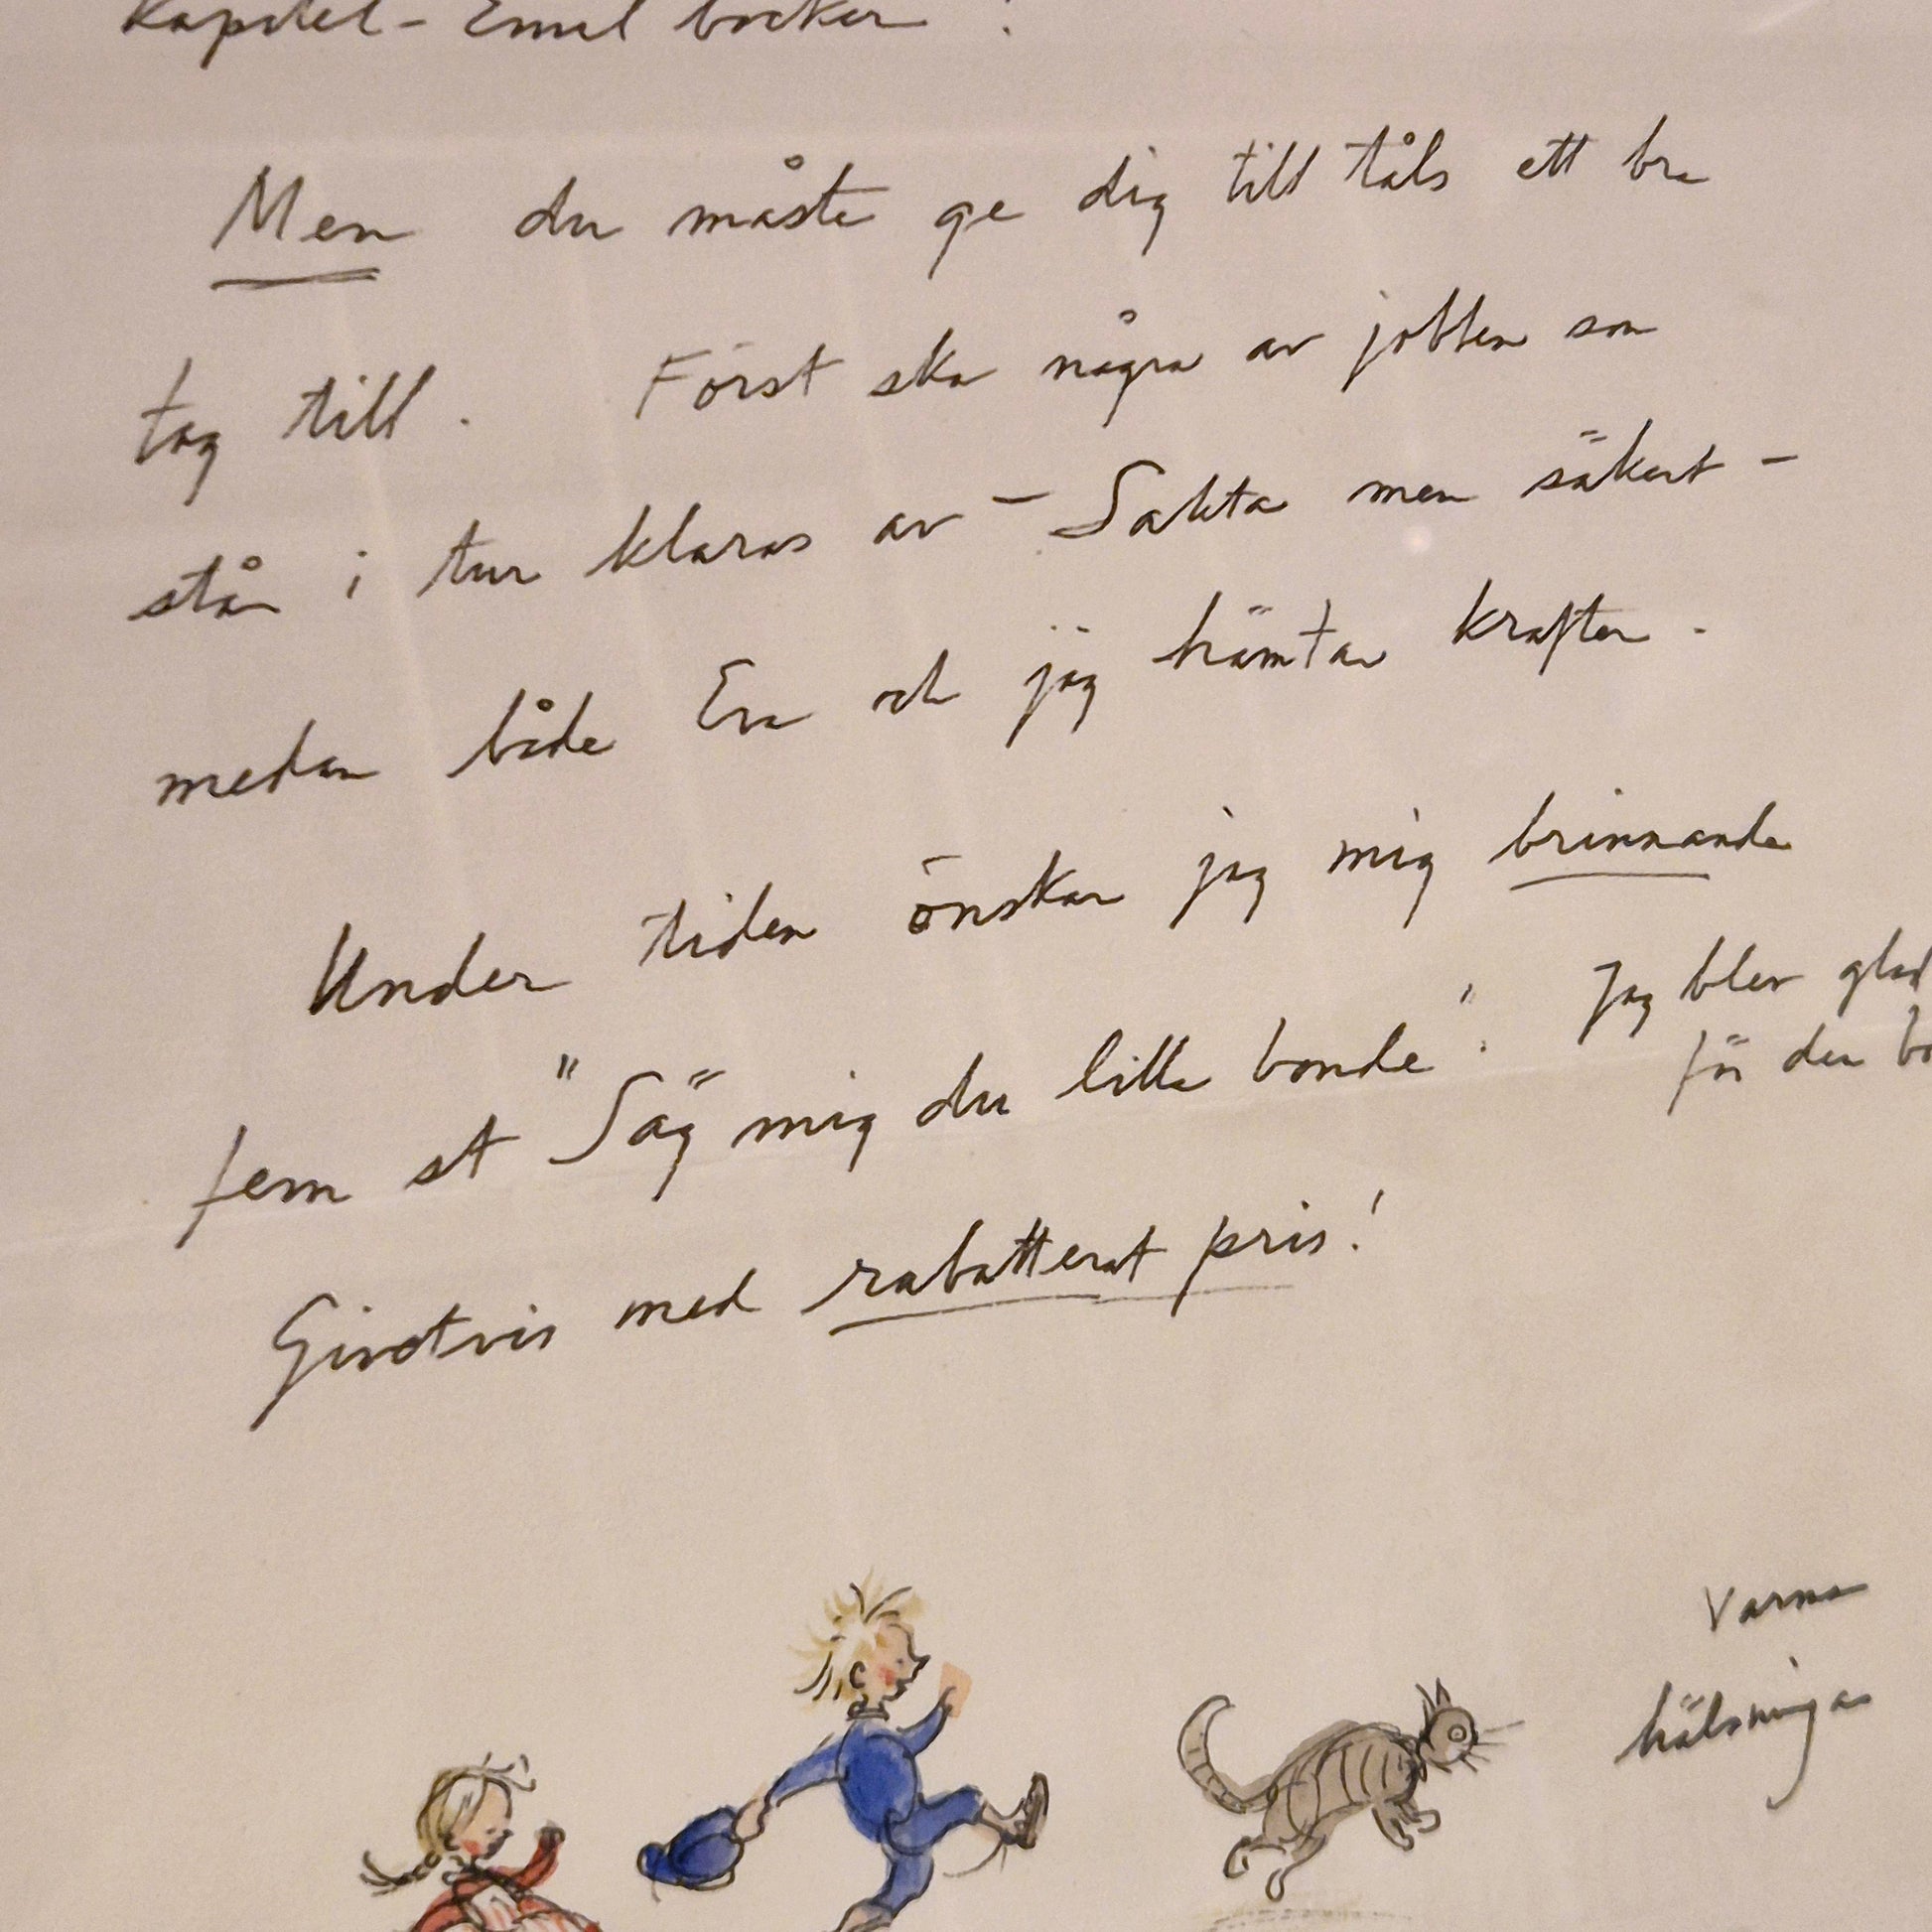 Kapitel-Emil böcker!
Men du måste ge dig till tåls ett bra
tag till. Först ska några av jobben som
står i tur klaras av - Sakta men säkert -
medan både Eva och jag hämtar krafter.
Under tiden önskar jag mig brinnande
fem st "Säg mig du lilla bonde". Jag blev glad
för den bo
Girotvis med rabatterat pris!
Varma
hälsningar